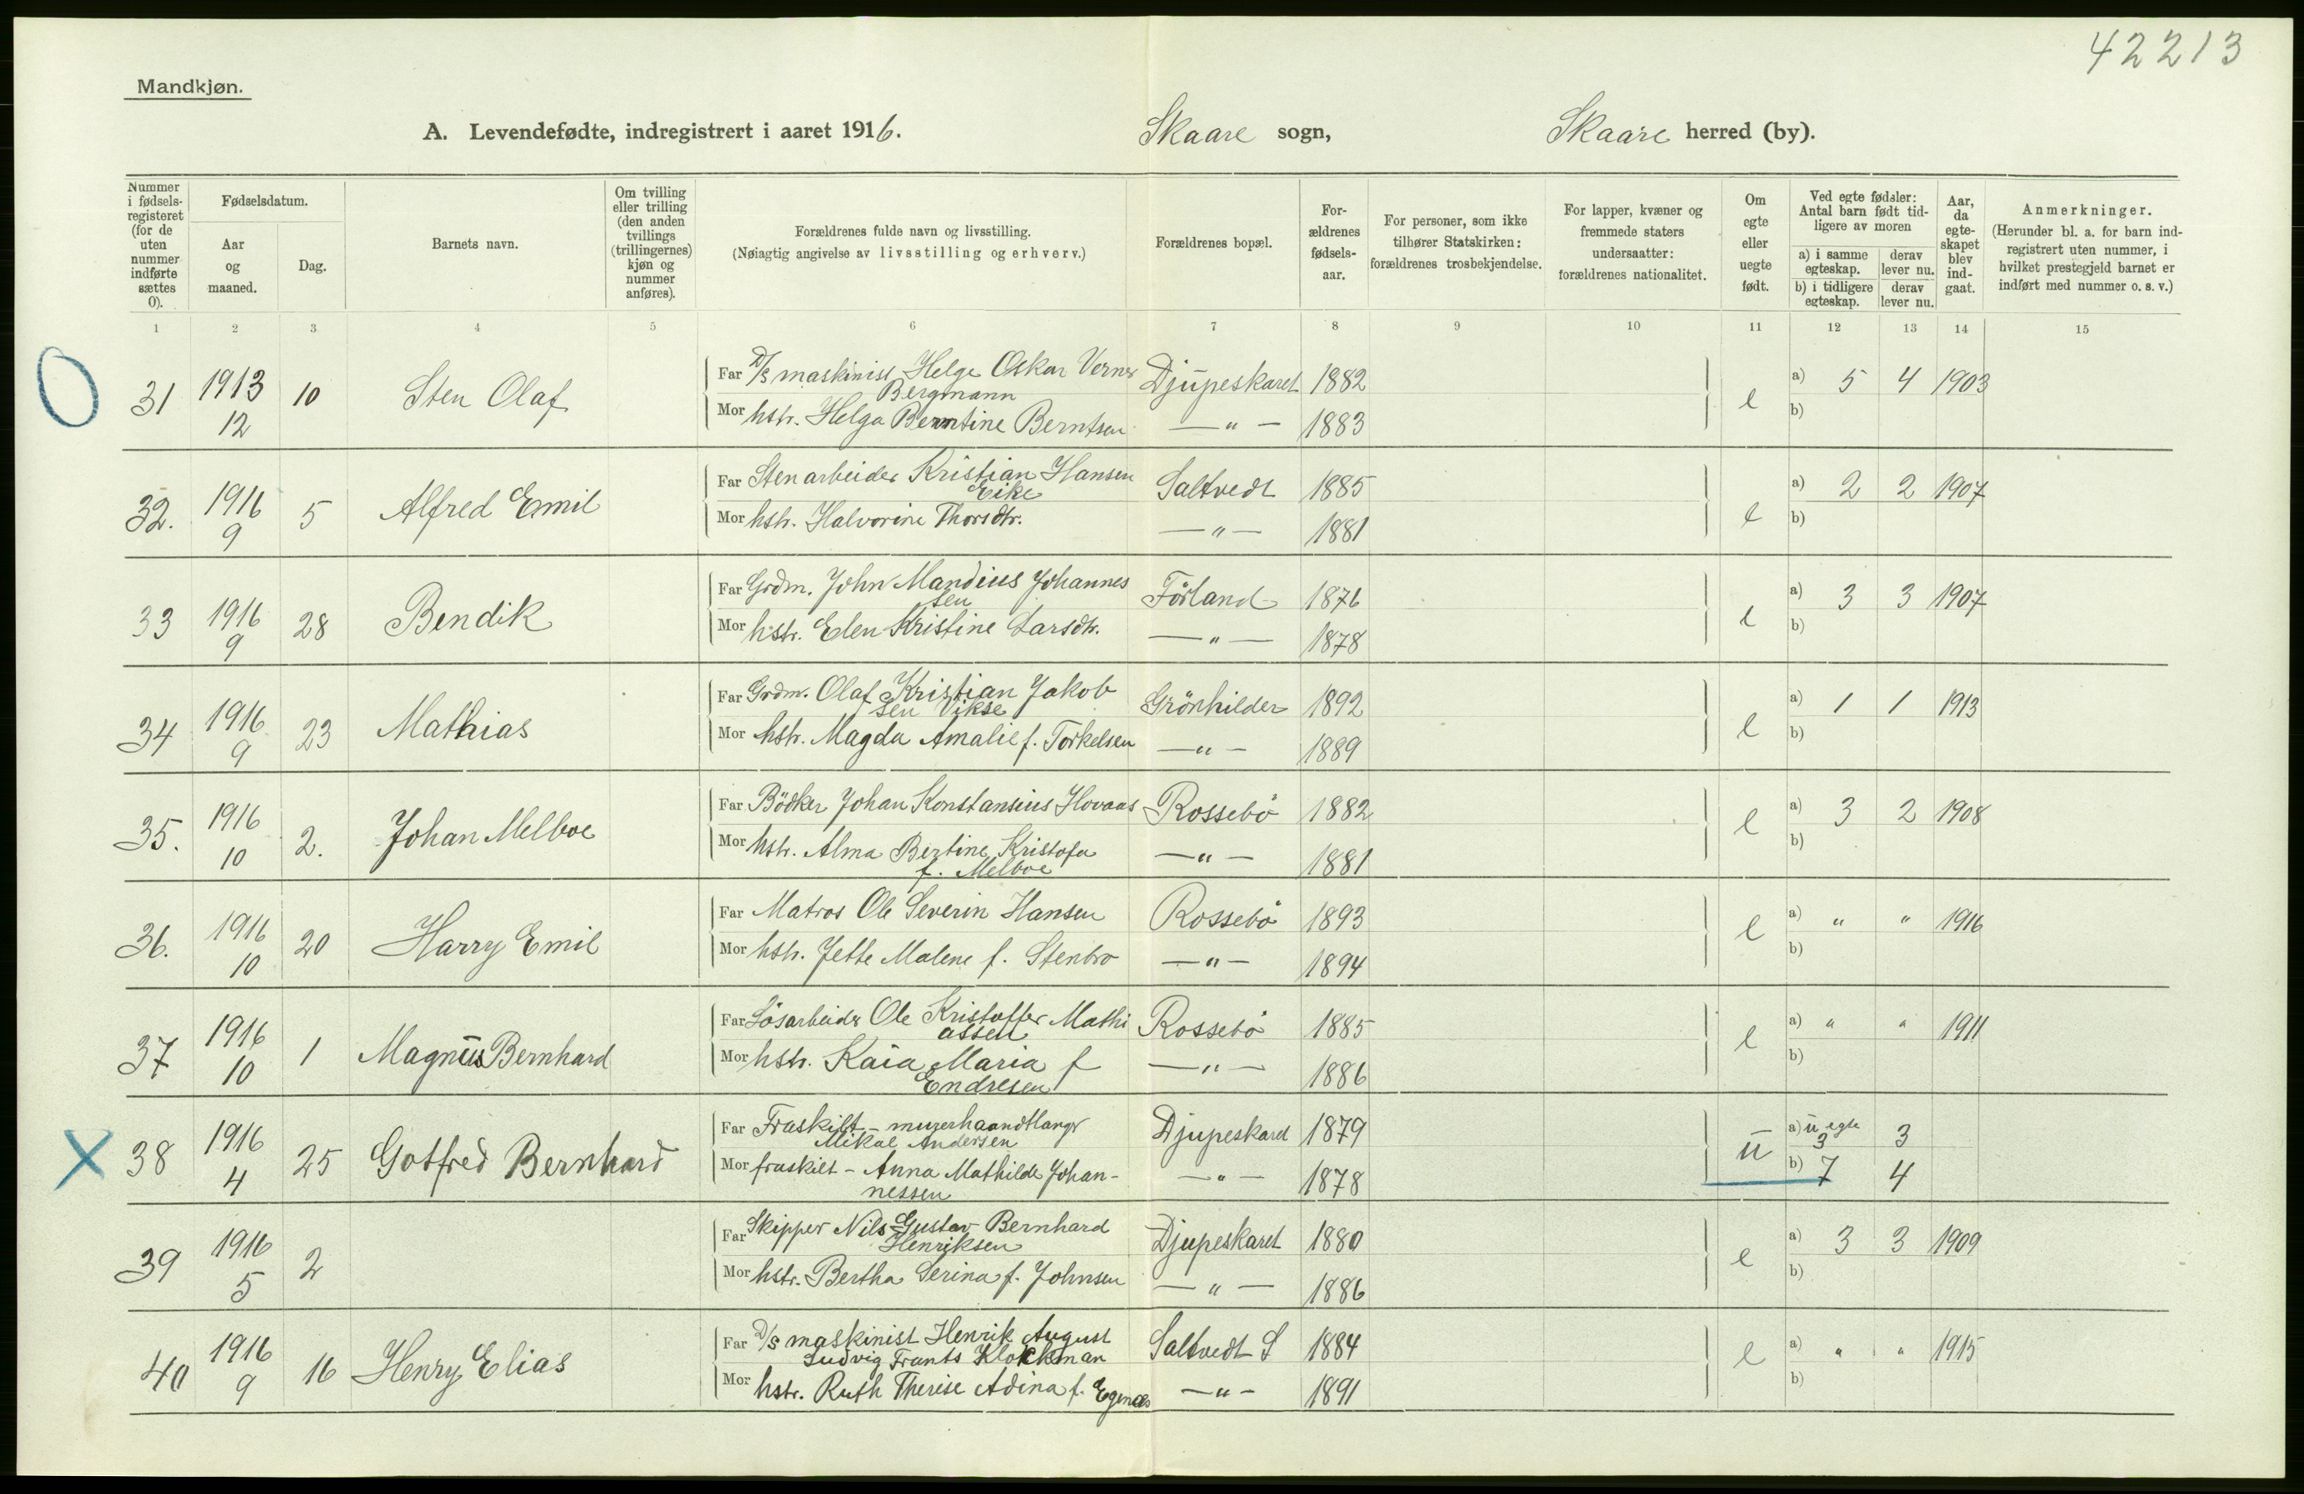 42213
Mandkjøn.
A. Levendefødte, indregistrert i aaret 1916. Skaare sogn, Skaare herred (by).
Nummer i fødsels-registeret (for de uten nummer indførte sættes 0).
Fødselsdatum.
Aar og maaned.
Dag.
Barnets navn.
Om tvilling eller trilling (den anden tvillings (trillingernes) kjøn og nummer anføres).
Forældrenes fulde navn og livsstilling.
(Nøiagtig angivelse av livsstilling og erhverv.)
Forældrenes bopæl.
For-ældrenes fødsels-aar.
For personer, som ikke tilhører Statskirken: forældrenes trosbekjendelse.
For lapper, kvæner og fremmede staters undersaatter: forældrenes nationalitet.
Om egte eller uegte født.
Ved egte fødsler: Antal barn født tid-ligere av moren
a) i samme egteskap. derav lever nu.
b) i tidligere egteskap. derav lever nu.
Aar, da egte-skapet blev ind-gaat.
Anmerkninger.
(Herunder bl. a. for barn ind-registrert uten nummer, i hvilket prestegjeld barnet er indført med nummer o. s. v.)
1 2 3 4 5 6 7 8 9 10 11 12 13 14 15
31 1913 12 10 Sten Olaf
Far D/S maskinist Helge Oskar Verner Bergmann Djupeskaret 1882 e a) 5 4 1903
Mor hstr. Helga Berntine Berntsen — " — 1883 b)
32. 1916 9 5 Alfred Emil
Far Stenarbeider Kristian Hansen Eike Saltvedt 1885 e a) 2 2 1907
Mor hstr. Halvorine Thorsdtr. — " — 1881 b)
33 1916 9 28 Bendik
Far Grdm. John Mandius Johannes sen Förland 1876 e a) 3 3 1907
Mor hstr. Elen Kristine Larsdtr. — " — 1878 b)
34 1916 9 23 Mathias
Far Grdm. Olaf Kristian Jakob sen Vikse Grönhilder 1892 e a) 1 1 1913
Mor hstr. Magda Amalie f. Torkelsen — " — 1889 b)
35. 1916 10 2. Johan Melboe
Far Bödker Johan Konstansius Hovaas Rossebö 1882 e a) 3 2 1908
Mor hstr. Alma Bertine Kristofa f. Melboe — " — 1881 b)
36. 1916 10 20 Harry Emil
Far Matros Ole Severin Hansen Rossebö 1893 e a) " " 1916
Mor hstr. Jette Malene f. Stenbro — " — 1894 b)
37 1916 10 1 Magnus Bernhard
Far Lösarbeider Ole Kristoffer Mathi assen Rossebö 1885 e a) " " 1911
Mor hstr. Kaia Maria f Endresen — " — 1886 b)
38 1916 4 25 Gotfred Bernhard
Far Fraskilt - murerhaandtlanger Mikal Andersen Djupeskard 1879 u a) u egte 3 3
Mor fraskilt - Anna Mathilde Johan-nessen — " — 1878 b) 7 4
39 1916 5 2
Far Skipper Nils Gustav Bernhard Henriksen Djupeskaret 1880 e a) 3 3 1909
Mor hstr. Bertha Serina f. Johnsen — " — 1886 b)
40 1916 9 16 Henry Elias
Far D/S maskinist Henrik August Ludvig Frants Klockman Saltvedt S 1884 e a) " " 1915
Mor hstr. Ruth Therese Adina f. Egenæs — " — 1891 b)